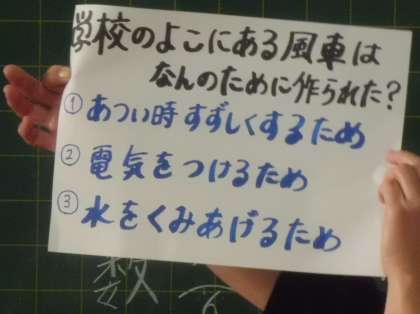 学校のよこにある風車は
なんのために作られた？
① あつい時すずしくするため
② 電気をつけるため
③ 水をくみあげるため